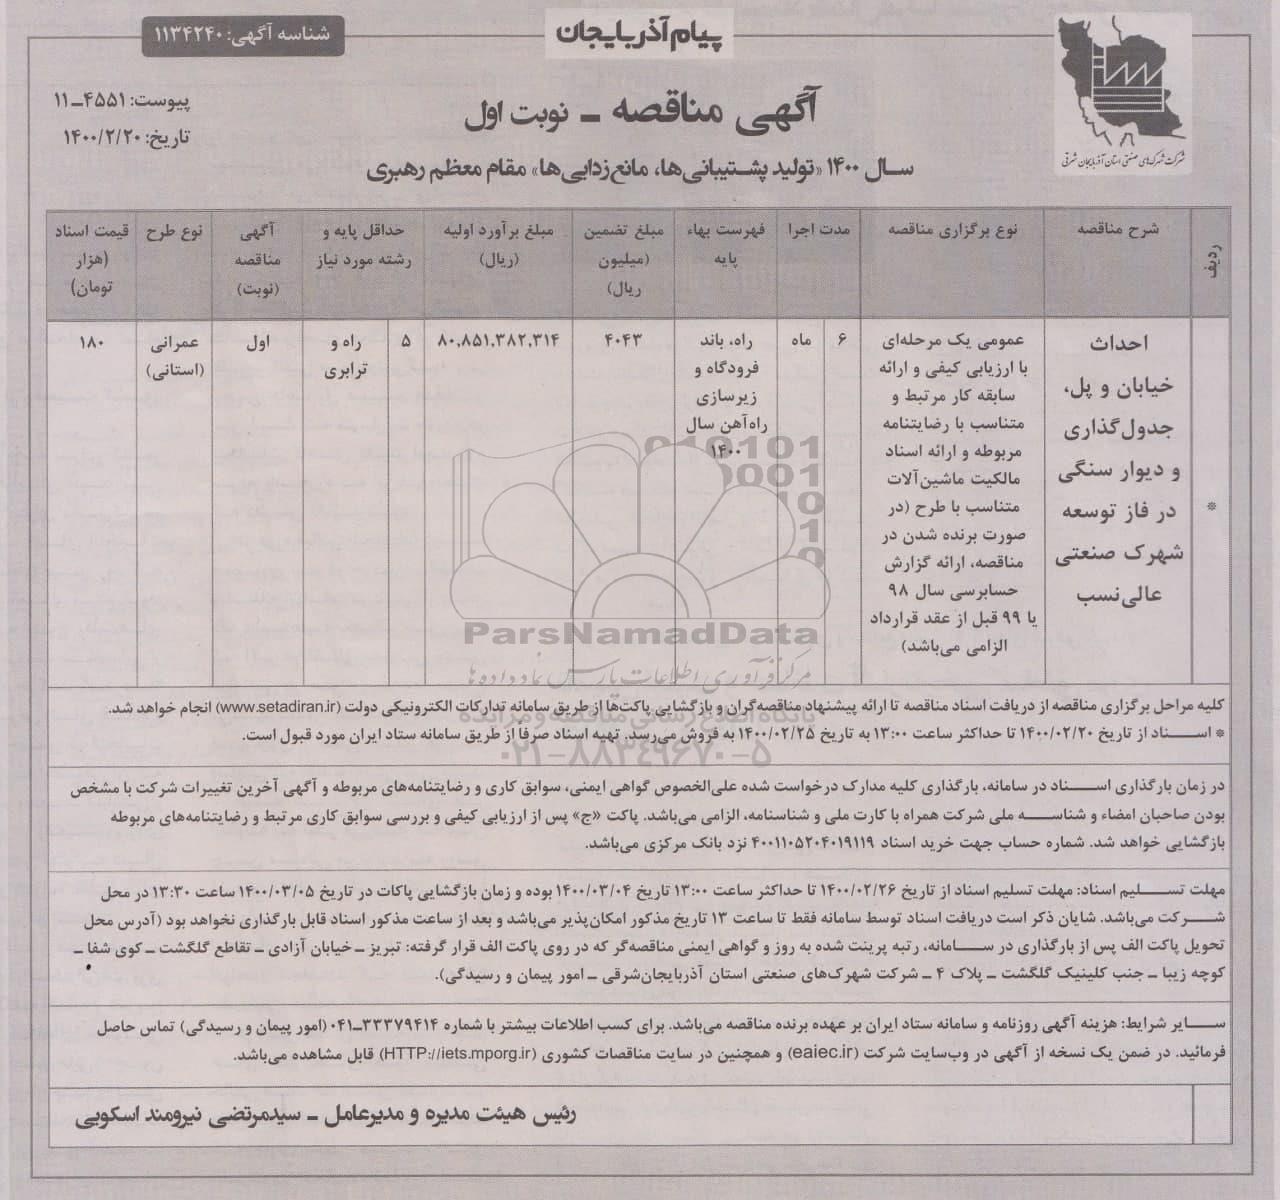 شناسه آگهی: ۱۱۳۴۲۴۰
پیام آذربایجان
شرکت شهرک‌های صنعتی استان آذربایجان شرقی
پیوست: ۴۵۵۱-۱۱
تاریخ: ۱۴۰۰/۲/۲۰
آگهی مناقصه ـ نوبت اول
سال ۱۴۰۰ «تولید پشتیبانی‌ها، مانع‌زدایی‌ها» مقام معظم رهبری
ردیف
شرح مناقصه
نوع برگزاری مناقصه
مدت اجرا
فهرست بهاء
پایه
مبلغ تضمین
(میلیون
ریال)
مبلغ برآورد اولیه
(ریال)
حداقل پایه و
رشته مورد نیاز
آگهی
مناقصه
(نوبت)
نوع طرح
قیمت اسناد
(هزار
تومان)
*
احداث
خیابان و پل،
جدول‌گذاری
و دیوار سنگی
در فاز توسعه
شهرک صنعتی
عالی‌نسب
عمومی یک مرحله‌ای
با ارزیابی کیفی و ارائه
سابقه کار مرتبط و
متناسب با رضایتنامه
مربوطه و ارائه اسناد
مالکیت ماشین‌آلات
متناسب با طرح (در
صورت برنده شدن در
مناقصه، ارائه گزارش
حسابرسی سال ۹۸
یا ۹۹ قبل از عقد قرارداد
الزامی می‌باشد)
۶
ماه
راه، باند
فرودگاه و
زیرسازی
راه‌آهن سال
۱۴۰۰
۴۰۴۳
۸۰,۸۵۱,۳۸۲,۳۱۴
۵
راه و
ترابری
اول
عمرانی
(استانی)
۱۸۰
ParsNamadData
مرکز فرآوری اطلاعات پارس نماد داده‌ها
پایگاه اطلاع رسانی مناقصه و مزایده
۰۲۱-۸۸۳۴۹۶۷۰-۵
کلیه مراحل برگزاری مناقصه از دریافت اسناد مناقصه تا ارائه پیشنهاد مناقصه‌گران و بازگشایی پاکت‌ها از طریق سامانه تدارکات الکترونیکی دولت (www.setadiran.ir) انجام خواهد شد.
* اسناد از تاریخ ۱۴۰۰/۰۲/۲۰ تا حداکثر ساعت ۱۳:۰۰ به تاریخ ۱۴۰۰/۰۲/۲۵ به فروش می‌رسد. تهیه اسناد صرفاً از طریق سامانه ستاد ایران مورد قبول است.
در زمان بارگذاری اسناد در سامانه، بارگذاری کلیه مدارک درخواست شده علی‌الخصوص گواهی ایمنی، سوابق کاری و رضایتنامه‌های مربوطه و آگهی آخرین تغییرات شرکت با مشخص
بودن صاحبان امضاء و شناسه ملی شرکت همراه با کارت ملی و شناسنامه، الزامی می‌باشد. پاکت «ج» پس از ارزیابی کیفی و بررسی سوابق کاری مرتبط و رضایتنامه‌های مربوطه
بازگشایی خواهد شد. شماره حساب جهت خرید اسناد ۴۰۰۱۱۰۵۲۰۴۰۱۹۱۱۹ نزد بانک مرکزی می‌باشد.
مهلت تسلیم اسناد: مهلت تسلیم اسناد از تاریخ ۱۴۰۰/۰۲/۲۶ تا حداکثر ساعت ۱۳:۰۰ تاریخ ۱۴۰۰/۰۳/۰۴ بوده و زمان بازگشایی پاکات در تاریخ ۱۴۰۰/۰۳/۰۵ ساعت ۱۳:۳۰ در محل
شرکت می‌باشد. شایان ذکر است دریافت اسناد توسط سامانه فقط تا ساعت ۱۳ تاریخ مذکور امکان‌پذیر می‌باشد و بعد از ساعت مذکور اسناد قابل بارگذاری نخواهد بود (آدرس محل
تحویل پاکت الف پس از بارگذاری در سامانه، رتبه پرینت شده به روز و گواهی ایمنی مناقصه‌گر که در روی پاکت الف قرار گرفته: تبریز ـ خیابان آزادی ـ تقاطع گلگشت ـ کوی شفا ـ
کوچه زیبا ـ جنب کلینیک گلگشت ـ پلاک ۴ ـ شرکت شهرک‌های صنعتی استان آذربایجان‌شرقی ـ امور پیمان و رسیدگی).
سایر شرایط: هزینه آگهی روزنامه و سامانه ستاد ایران بر عهده برنده مناقصه می‌باشد. برای کسب اطلاعات بیشتر با شماره ۳۳۳۷۹۴۱۴-۰۴۱ (امور پیمان و رسیدگی) تماس حاصل
فرمائید. در ضمن یک نسخه از آگهی در وب‌سایت شرکت (eaiec.ir) و همچنین در سایت مناقصات کشوری (HTTP://iets.mporg.ir) قابل مشاهده می‌باشد.
رئیس هیئت مدیره و مدیرعامل ـ سیدمرتضی نیرومند اسکویی